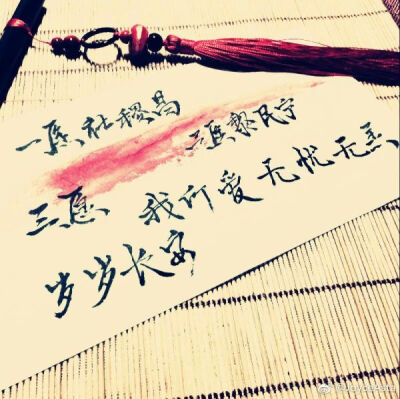 一愿社稷昌
二愿黎民宁
三愿 我所爱无忧无恙
岁岁长安